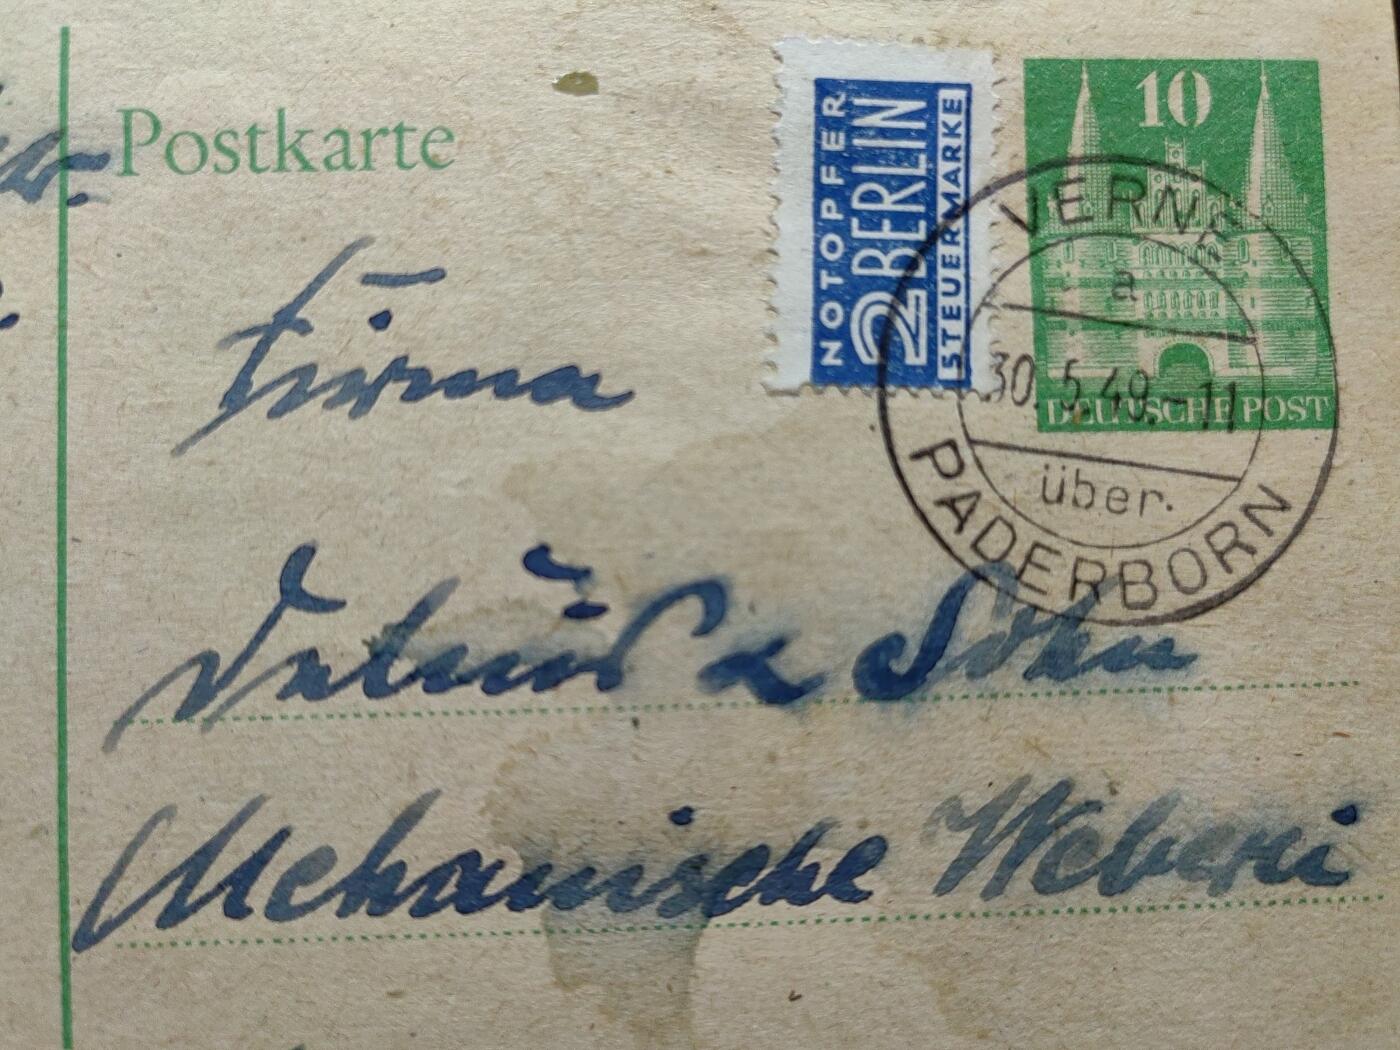 Postkarte
NOTOPFER
2 BERLIN
STEUERMARKE
10
DEUTSCHE POST
VERNE
a
30.5.49.-11
über.
PADERBORN
Firma
& Sohn
Mechanische Weberei